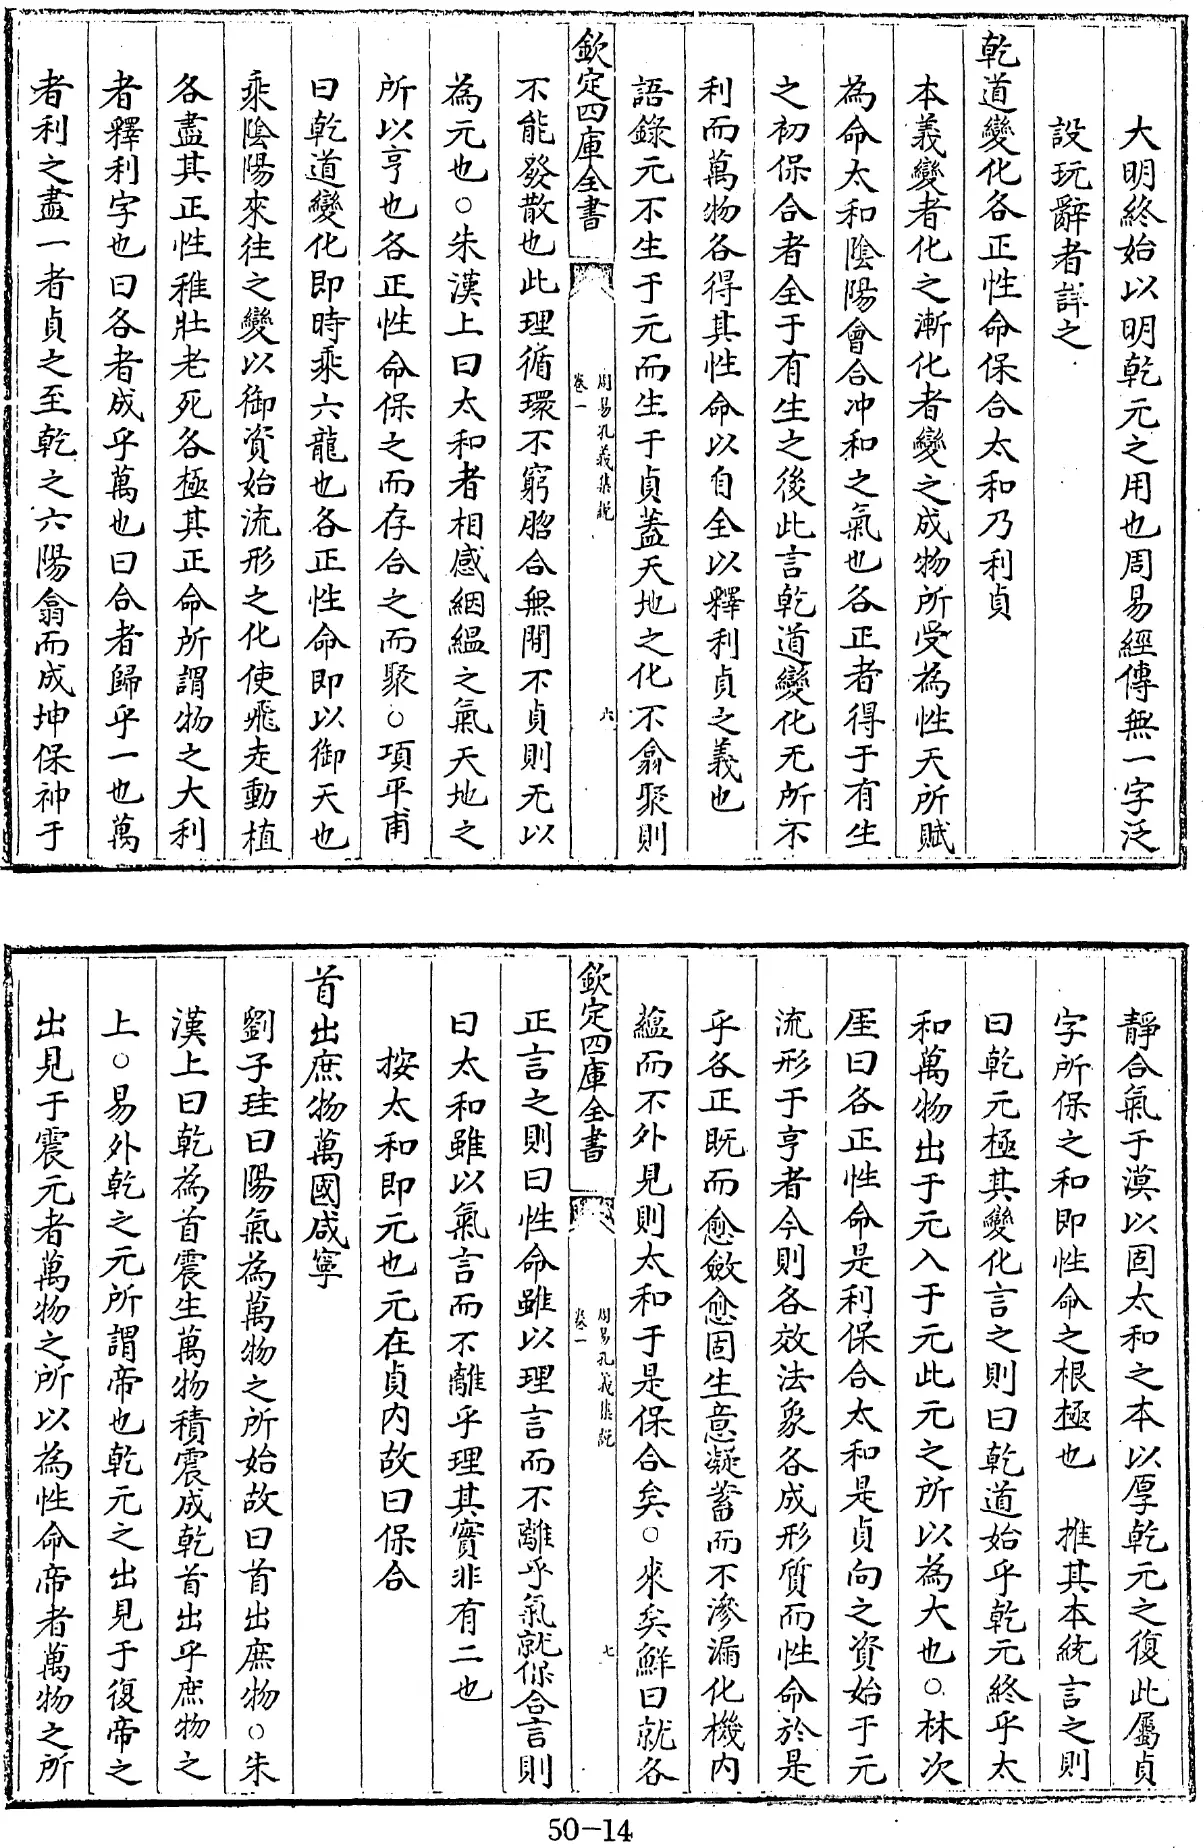 大明終始以明乾元之用也周易經傳無一字泛
設玩辭者詳之
乾道變化各正性命保合太和乃利貞
本義變者化之漸化者變之成物所受為性天所賦
為命太和陰陽會合冲和之氣也各正者得于有生
之初保合者全于有生之後此言乾道變化无所不
利而萬物各得其性命以自全以釋利貞之義也
語錄元不生于元而生于貞蓋天地之化不翕聚則
欽定四庫全書
周易孔義集說
卷一
六
不能發散也此理循環不窮脗合無間不貞則无以
為元也○朱漢上曰太和者相感絪縕之氣天地之
所以亨也各正性命保之而存合之而聚○項平甫
曰乾道變化即時乘六龍也各正性命即以御天也
乘陰陽來往之變以御資始流形之化使飛走動植
各盡其正性稚壯老死各極其正命所謂物之大利
者釋利字也曰各者成乎萬也曰合者歸乎一也萬
者利之盡一者貞之至乾之六陽翕而成坤保神于
靜合氣于漠以固太和之本以厚乾元之復此屬貞
字所保之和即性命之根極也 推其本統言之則
曰乾元極其變化言之則曰乾道始乎乾元終乎太
和萬物出于元入于元此元之所以為大也○林次
厓曰各正性命是利保合太和是貞向之資始于元
流形于亨者今則各效法象各成形質而性命於是
乎各正既而愈斂愈固生意凝蓄而不滲漏化機內
藴而不外見則太和于是保合矣○來矣鮮曰就各
欽定四庫全書
周易孔義集說
卷一
七
正言之則曰性命雖以理言而不離乎氣就保合言則
曰太和雖以氣言而不離乎理其實非有二也
按太和即元也元在貞內故曰保合
首出庶物萬國咸寧
劉子珪曰陽氣為萬物之所始故曰首出庶物○朱
漢上曰乾為首震生萬物積震成乾首出乎庶物之
上○易外乾之元所謂帝也乾元之出見于復帝之
出見于震元者萬物之所以為性命帝者萬物之所
50-14